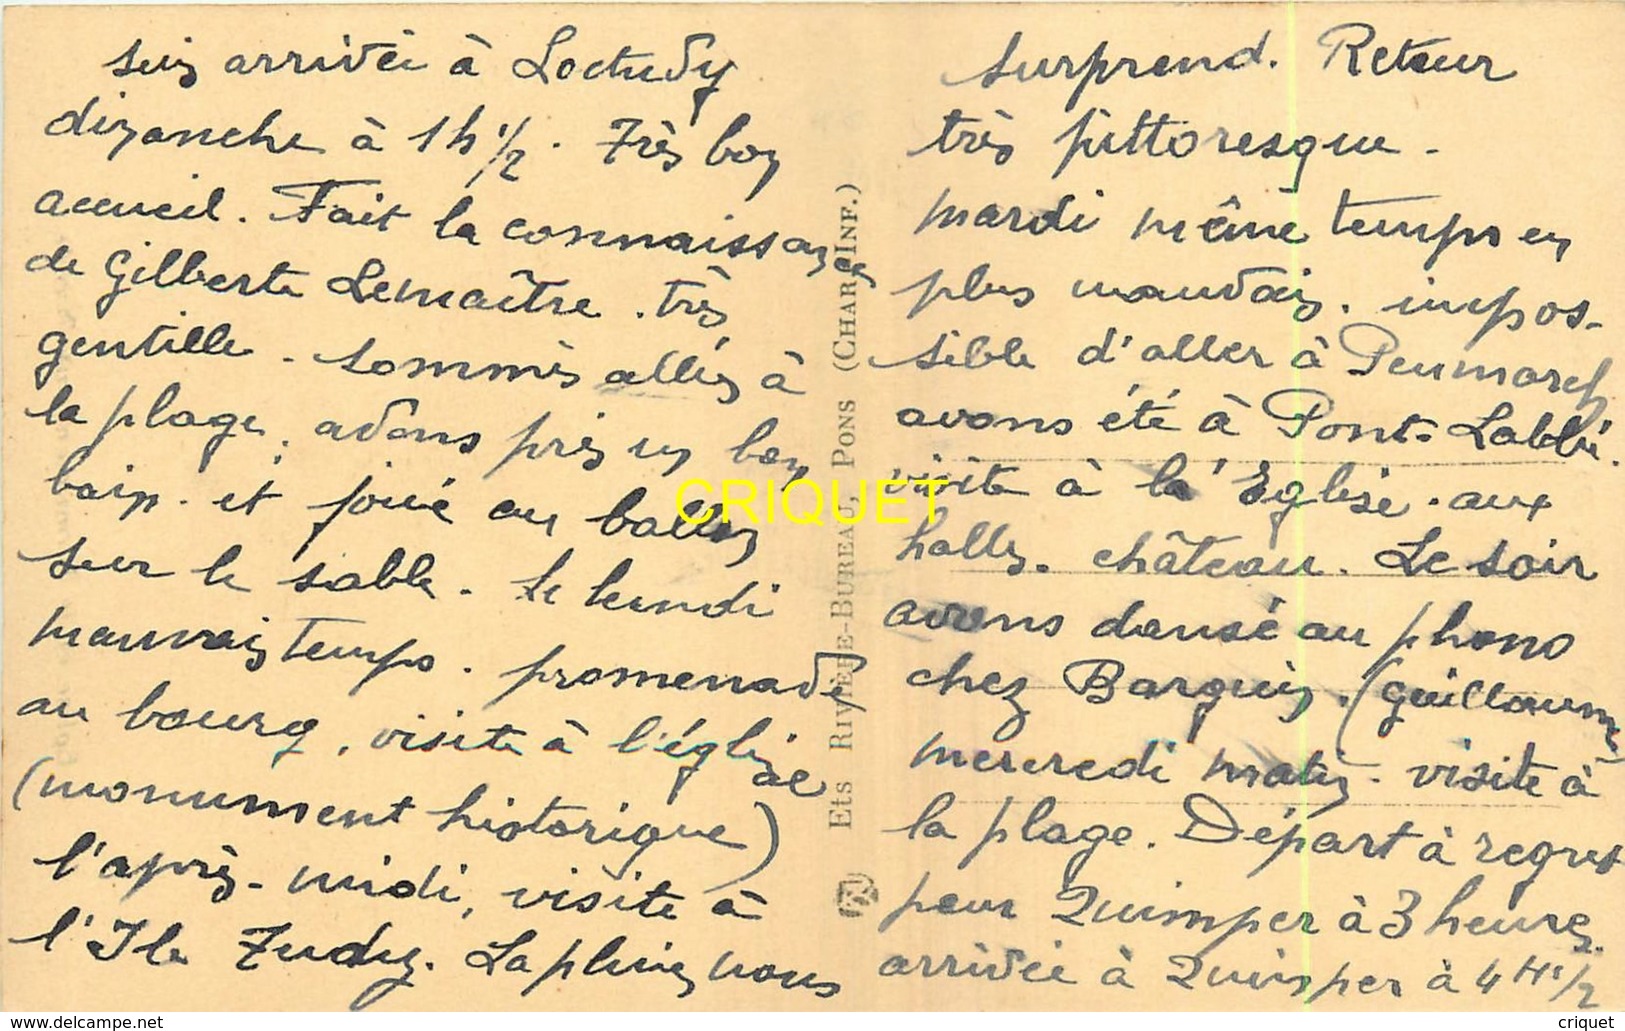 suis arrivée à Loctudy
dimanche à 1h 1/2. Très bon
accueil. Fait la connaissance
de Gilberte Lemaître. très
gentille. sommes allés à
la plage, avons pris un bon
bain. et joué au ballon
sur le sable. le lundi
mauvais temps. promenade
au bourg, visite à l'église
(monument historique)
l'après-midi, visite à
l'Ile Tudy. La pluie nous
surprend. Retour
très pittoresque.
mardi même temps en
plus mauvais. impos-
sible d'aller à Penmarch
avons été à Pont-Labbé.
visite à l'Eglise. aux
halles. château. Le soir
avons dansé au phono
chez Barguin. (Guillaume
mercredi matin. visite à
la plage. Départ à regret
pour Quimper à 3 heures.
arrivée à Quimper à 4H 1/2
Ets RIVIÈRE-BUREAU, PONS (CHAR. INF.)
CRIQUET
www.delcampe.net
criquet